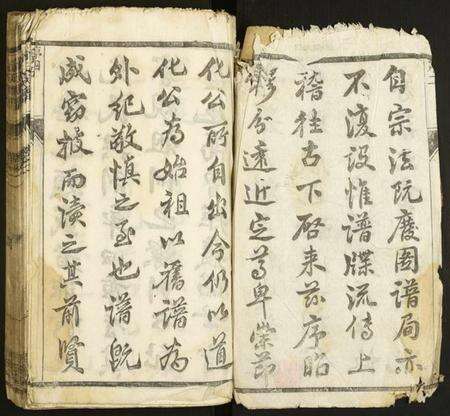 自宗法既廢國譜局亦
不復設惟譜牒流傳上
稽往古下啓来茲序昭
穆分遠近定尊卑崇節
化公所自出今仍以道
化公為始祖以舊譜為
外紀敬慎之至也譜既
成窃披而讀之其前賢